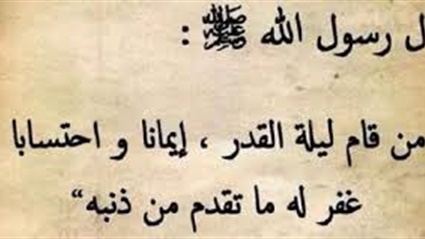 ل رسول الله ﷺ :
من قام ليلة القدر ، إيمانا و احتسابا
غفر له ما تقدم من ذنبه“